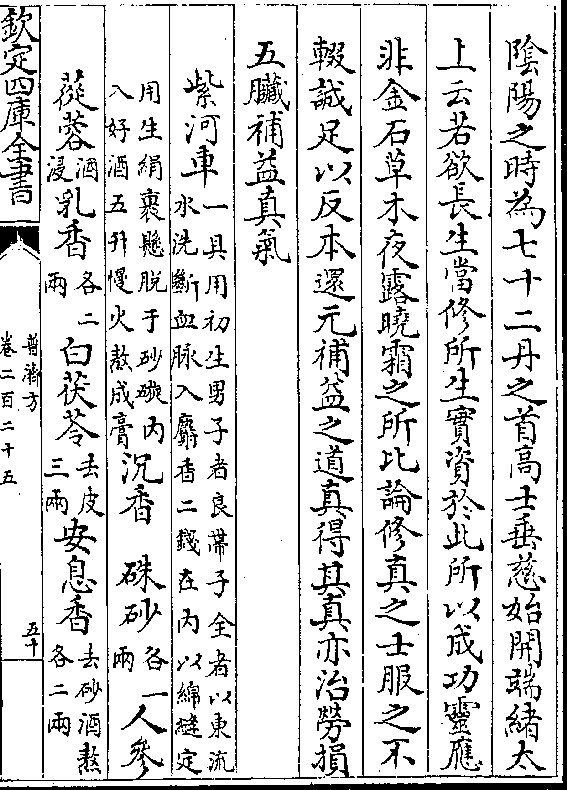 陰陽之時為七十二丹之首高士垂慈始開端緒太
上云若欲長生當修所生實資於此所以成功靈應
非金石草木夜露曉霜之所比論修真之士服之不
輟誠足以反本還元補益之道真得其真亦治勞損
五臟補益真氣
紫河車一具用初生男子者良帶子全者以東流
水洗斷血脉入麝香二錢在内以綿縫定
用生絹裹懸脫于砂礶内
入好酒五升慢火熬成膏沉香 硃砂各一兩人參
蓯蓉酒浸乳香各二兩白茯苓去皮三兩安息香去砂酒熬各二兩
欽定四庫全書
普濟方
卷二百二十五
五十